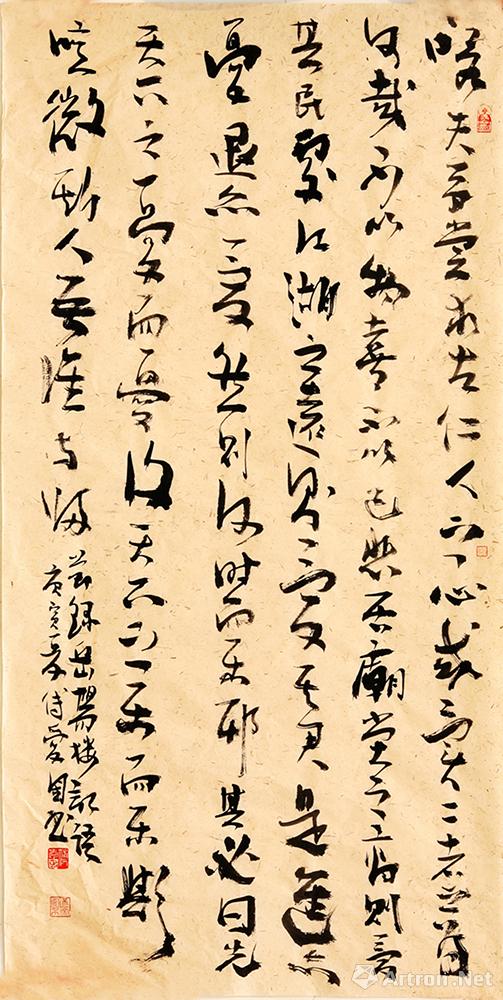 嗟夫予嘗求古仁人之心或異二者之為
何哉不以物喜不以己悲居廟堂之高則憂
其民處江湖之遠則憂其君是進亦
憂退亦憂然則何時而樂耶其必曰先
天下之憂而憂後天下之樂而樂歟
噫微斯人吾誰與歸
節錄岳陽樓記語
庚寅年傅愛國書
Artron.Net